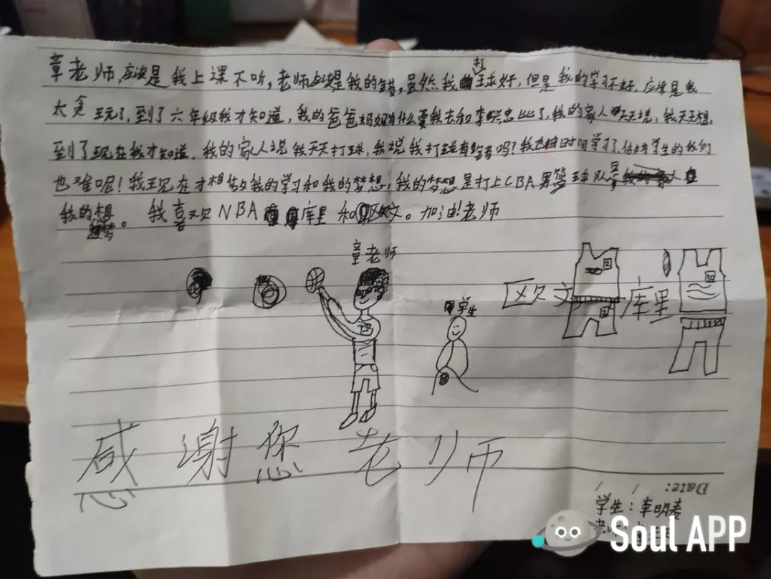 章老师,应该是我上课不听,老师应该是我的错,虽然我打球好,但是我的学习不好,应该是我
太贪玩了,到了六年级我才知道,我的爸爸妈妈为什么要我去和李比了,我的家人天天说,我天天想,
到了现在我才知道,我的家人说我天天打球,我说我打球有错吗?我也想时间学习了,你当学生的我们
也难呢!我现在才想放我的学习和我的梦想,我的梦想是打上CBA男篮球队
我的想。我喜欢NBA库里和欧文。加油!老师
章老师
学生
欧文
库里
感谢您老师
Date:
学生:李明
Soul APP